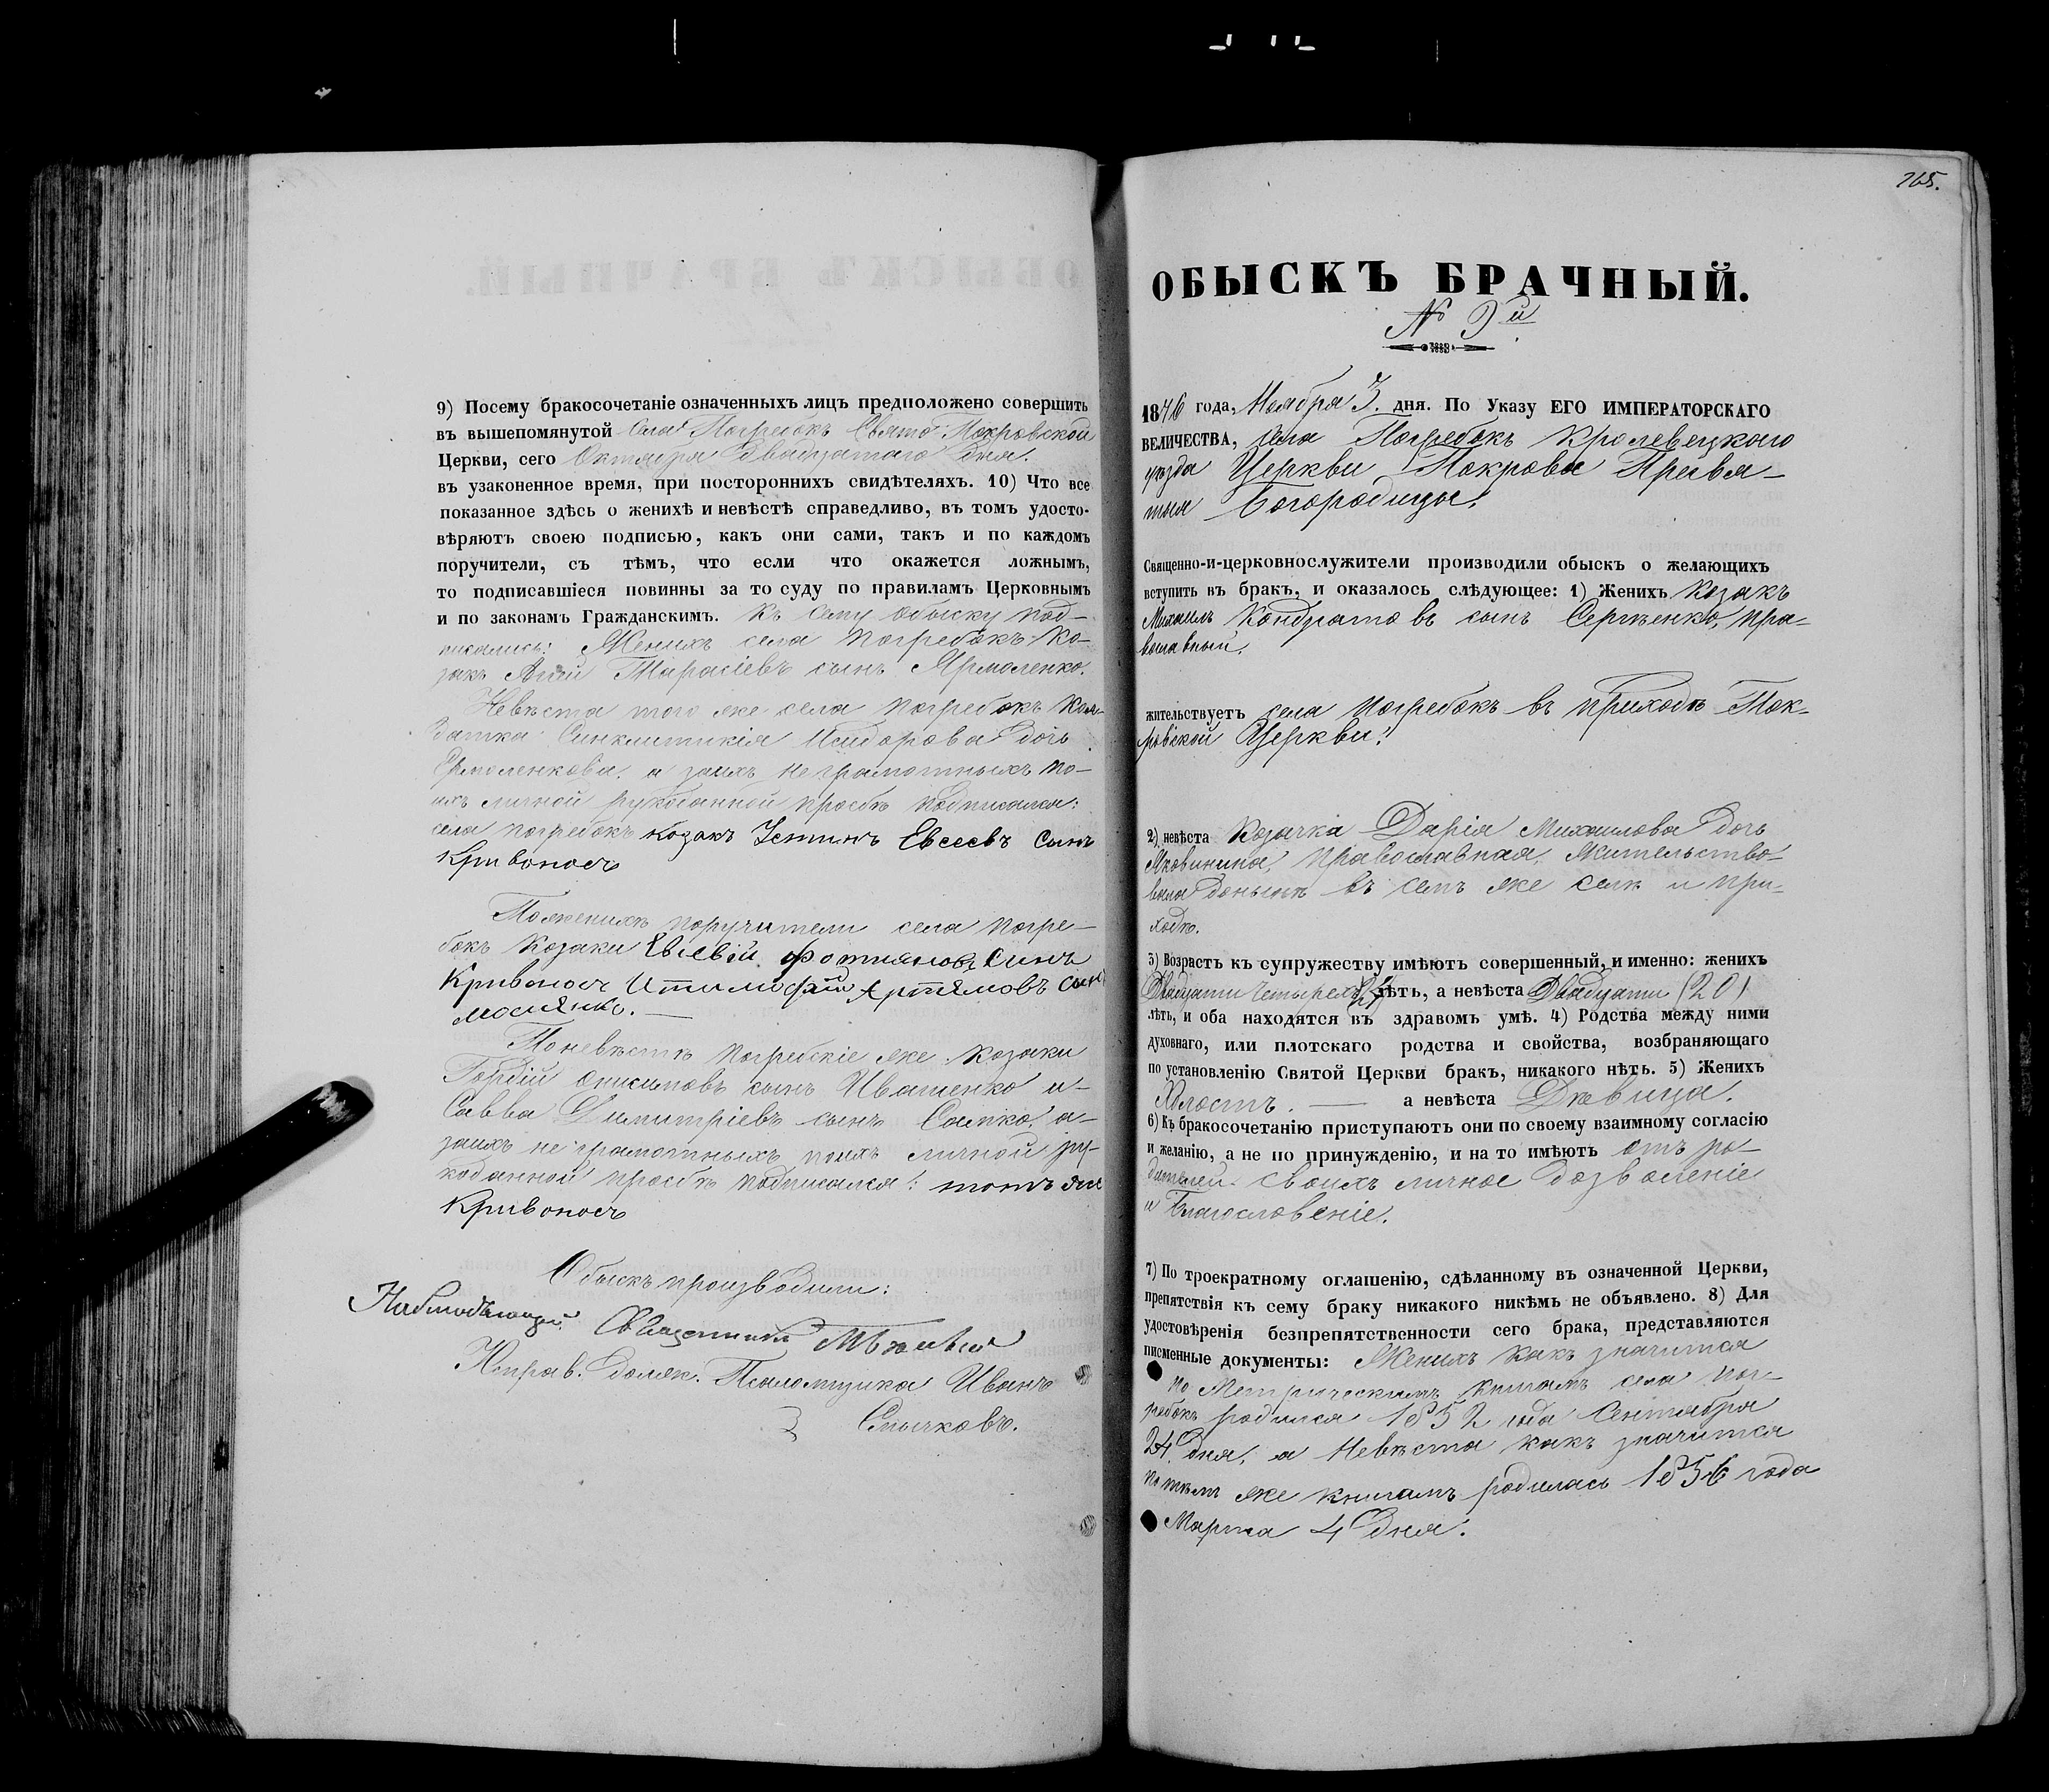 9) Посему бракосочетаніе означенныхъ лицъ предположено совершить
въ вышепомянутой села Погребокъ Свято-Покровской
Церкви, сего Октября двадцатаго дня.
въ узаконенное время, при постороннихъ свидѣтеляхъ. 10) Что все
показанное здѣсь о женихѣ и невѣстѣ справедливо, въ томъ удосто-
вѣряютъ своею подписью, какъ они сами, такъ и по каждомъ
поручители, съ тѣмъ, что если что окажется ложнымъ,
то подписавшіеся повинны за то суду по правиламъ Церковнымъ
и по законамъ Гражданскимъ. Къ сему обыску под-
писались: Женихъ села Погребокъ Ко-
закъ Тарасіевъ сынъ Ярмоленко.
Невѣста того же села Погребокъ
Синклитикія Исидорова дочь
Ермоленкова, а за ихъ неграмотныхъ по
ихъ личной рукоданной прозбѣ подписался:
села Погребокъ козакъ Устинъ Евсеевъ сынъ
Кривоносъ
По женихѣ поручители села Погре-
бокъ козаки Евсевій Фотиновъ синъ
Кривонось Итимофій Артемовъ сынъ
По невѣстѣ Погребскіе же козаки
Гордій Онисимовъ сынъ Ивашенко и
Савва Димитріевъ сынъ а
за ихъ неграмотныхъ по ихъ личной ру-
коданной прозбѣ подписался: тотъ же
Кривоносъ
Обыскъ производили:
Наблюдающій Священникъ
И. прав. долж. Псаломщика Иванъ
Смычковъ.
265.
ОБЫСКЪ БРАЧНЫЙ.
№ 9й
1876 года, Ноября 3. дня. По Указу ЕГО ИМПЕРАТОРСКАГО
ВЕЛИЧЕСТВА, села Погребокъ Кролевецкого
уѣзда Церкви Покрова Пресвя-
тыя Богородицы.
Священно-и-церковнослужители производили обыскъ о желающихъ
вступить въ бракъ, и оказалось слѣдующее: 1) Женихъ Козакъ
Михаилъ Кондратовъ сынъ Сергѣенко, пра-
вославный.
жительствуетъ села Погребокъ въ приходѣ Пок-
ровской Церкви.
2) невѣста Козачка Дарія Михаилова дочь
Яковинина, православная, жительство-
вала донынѣ въ семъ же селѣ и при-
ходѣ.
3) Возрастъ къ супружеству имѣютъ совершенный, и именно: женихъ
Двадцати четырехъ 24 лѣтъ, а невѣста Двадцати (20)
лѣтъ, и оба находятся въ здравомъ умѣ. 4) Родства между ними
духовнаго, или плотскаго родства и свойства, возбраняющаго
по установленію Святой Церкви бракъ, никакого нѣтъ. 5) Женихъ
Холостъ. — а невѣста Дѣвица.
6) Къ бракосочетанію приступаютъ они по своему взаимному согласію
и желанію, а не по принужденію, и на то имѣютъ отъ ро-
дителей своихъ личное дозволеніе
и благословеніе.
7) По троекратному оглашенію, сдѣланному въ означенной Церкви,
препятствія къ сему браку никакого никѣмъ не объявлено. 8) Для
удостовѣренія безпрепятственности сего брака, представляются
писменные документы: Женихъ какъ значится
по Метрическимъ книгамъ села Пог-
ребокъ родился 1852 года Сентября
24 дня, а Невѣста какъ значится
по тѣмъ же книгамъ родилась 1856 года
Марта 4 дня.